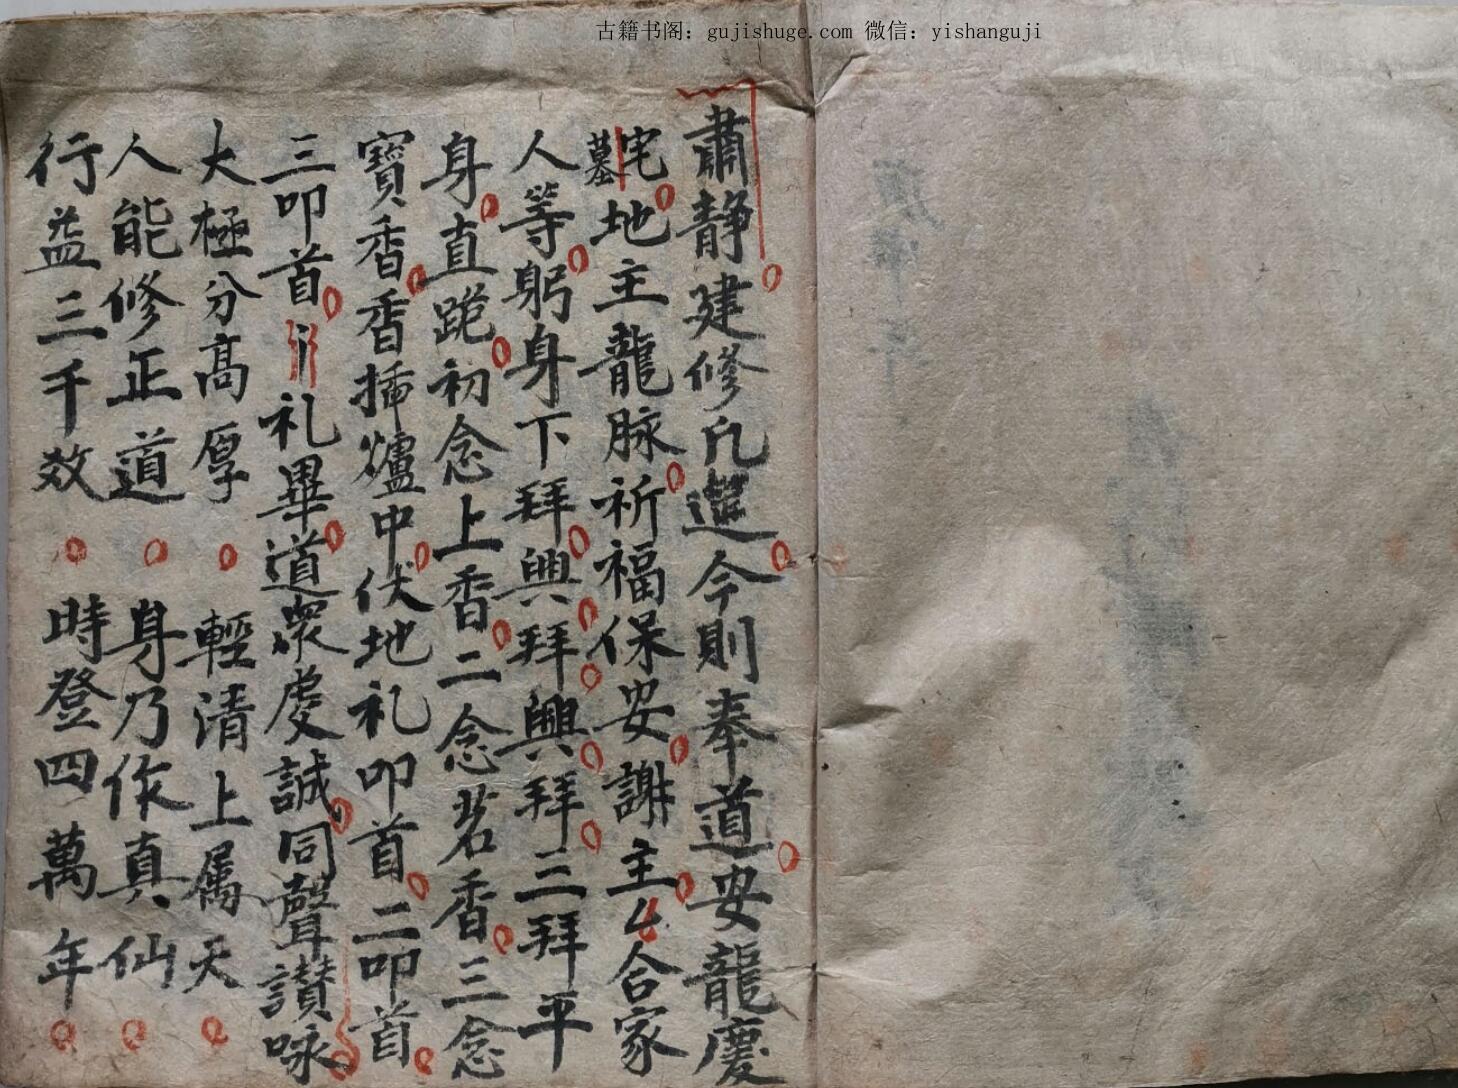 古籍书阁：gujishuge.com 微信：yishanguji
肅静建修凡筵今則奉道安龍慶
宅墓地主龍脉祈福保安謝主厶合家
人等躬身下拜興拜興拜三拜平
身直跪初念上香二念茗香三念
寶香香揷爐中伏地礼叩首二叩首
三叩首礼畢道衆虔誠同聲讃咏
大極分高厚 輕清上属天
人能修正道 身乃作真仙
行益三千效 時登四萬年